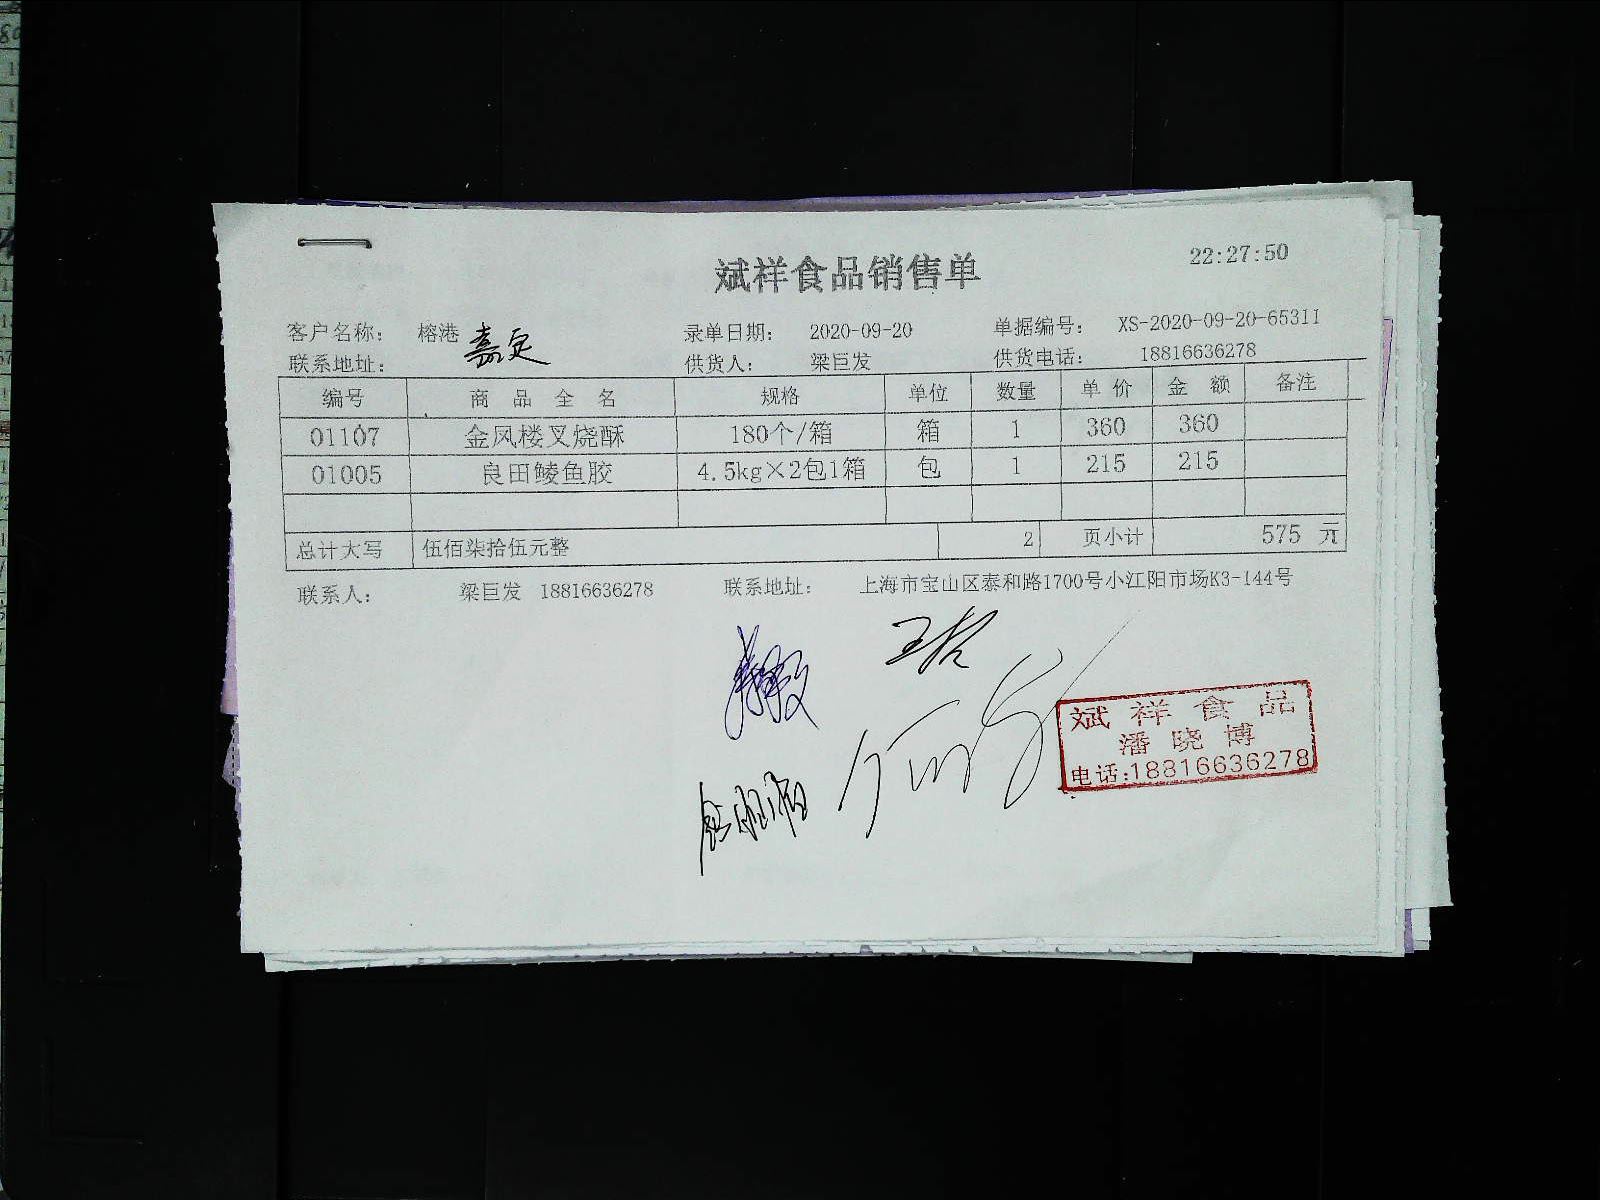 22:27:50
斌祥食品销售单
客户名称： 榕港 嘉定 录单日期： 2020-09-20 单据编号： XS-2020-09-20-65311
联系地址： 供货人： 梁巨发 供货电话： 18816636278
编号 商 品 全 名 规格 单位 数量 单 价 金 额 备注
01107 金凤楼叉烧酥 180个/箱 箱 1 360 360
01005 良田鲮鱼胶 4.5kg×2包1箱 包 1 215 215
总计大写 伍佰柒拾伍元整 2 页小计 575 元
联系人： 梁巨发 18816636278 联系地址： 上海市宝山区泰和路1700号小江阳市场K3-144号
斌祥食品
潘晓博
电话:18816636278